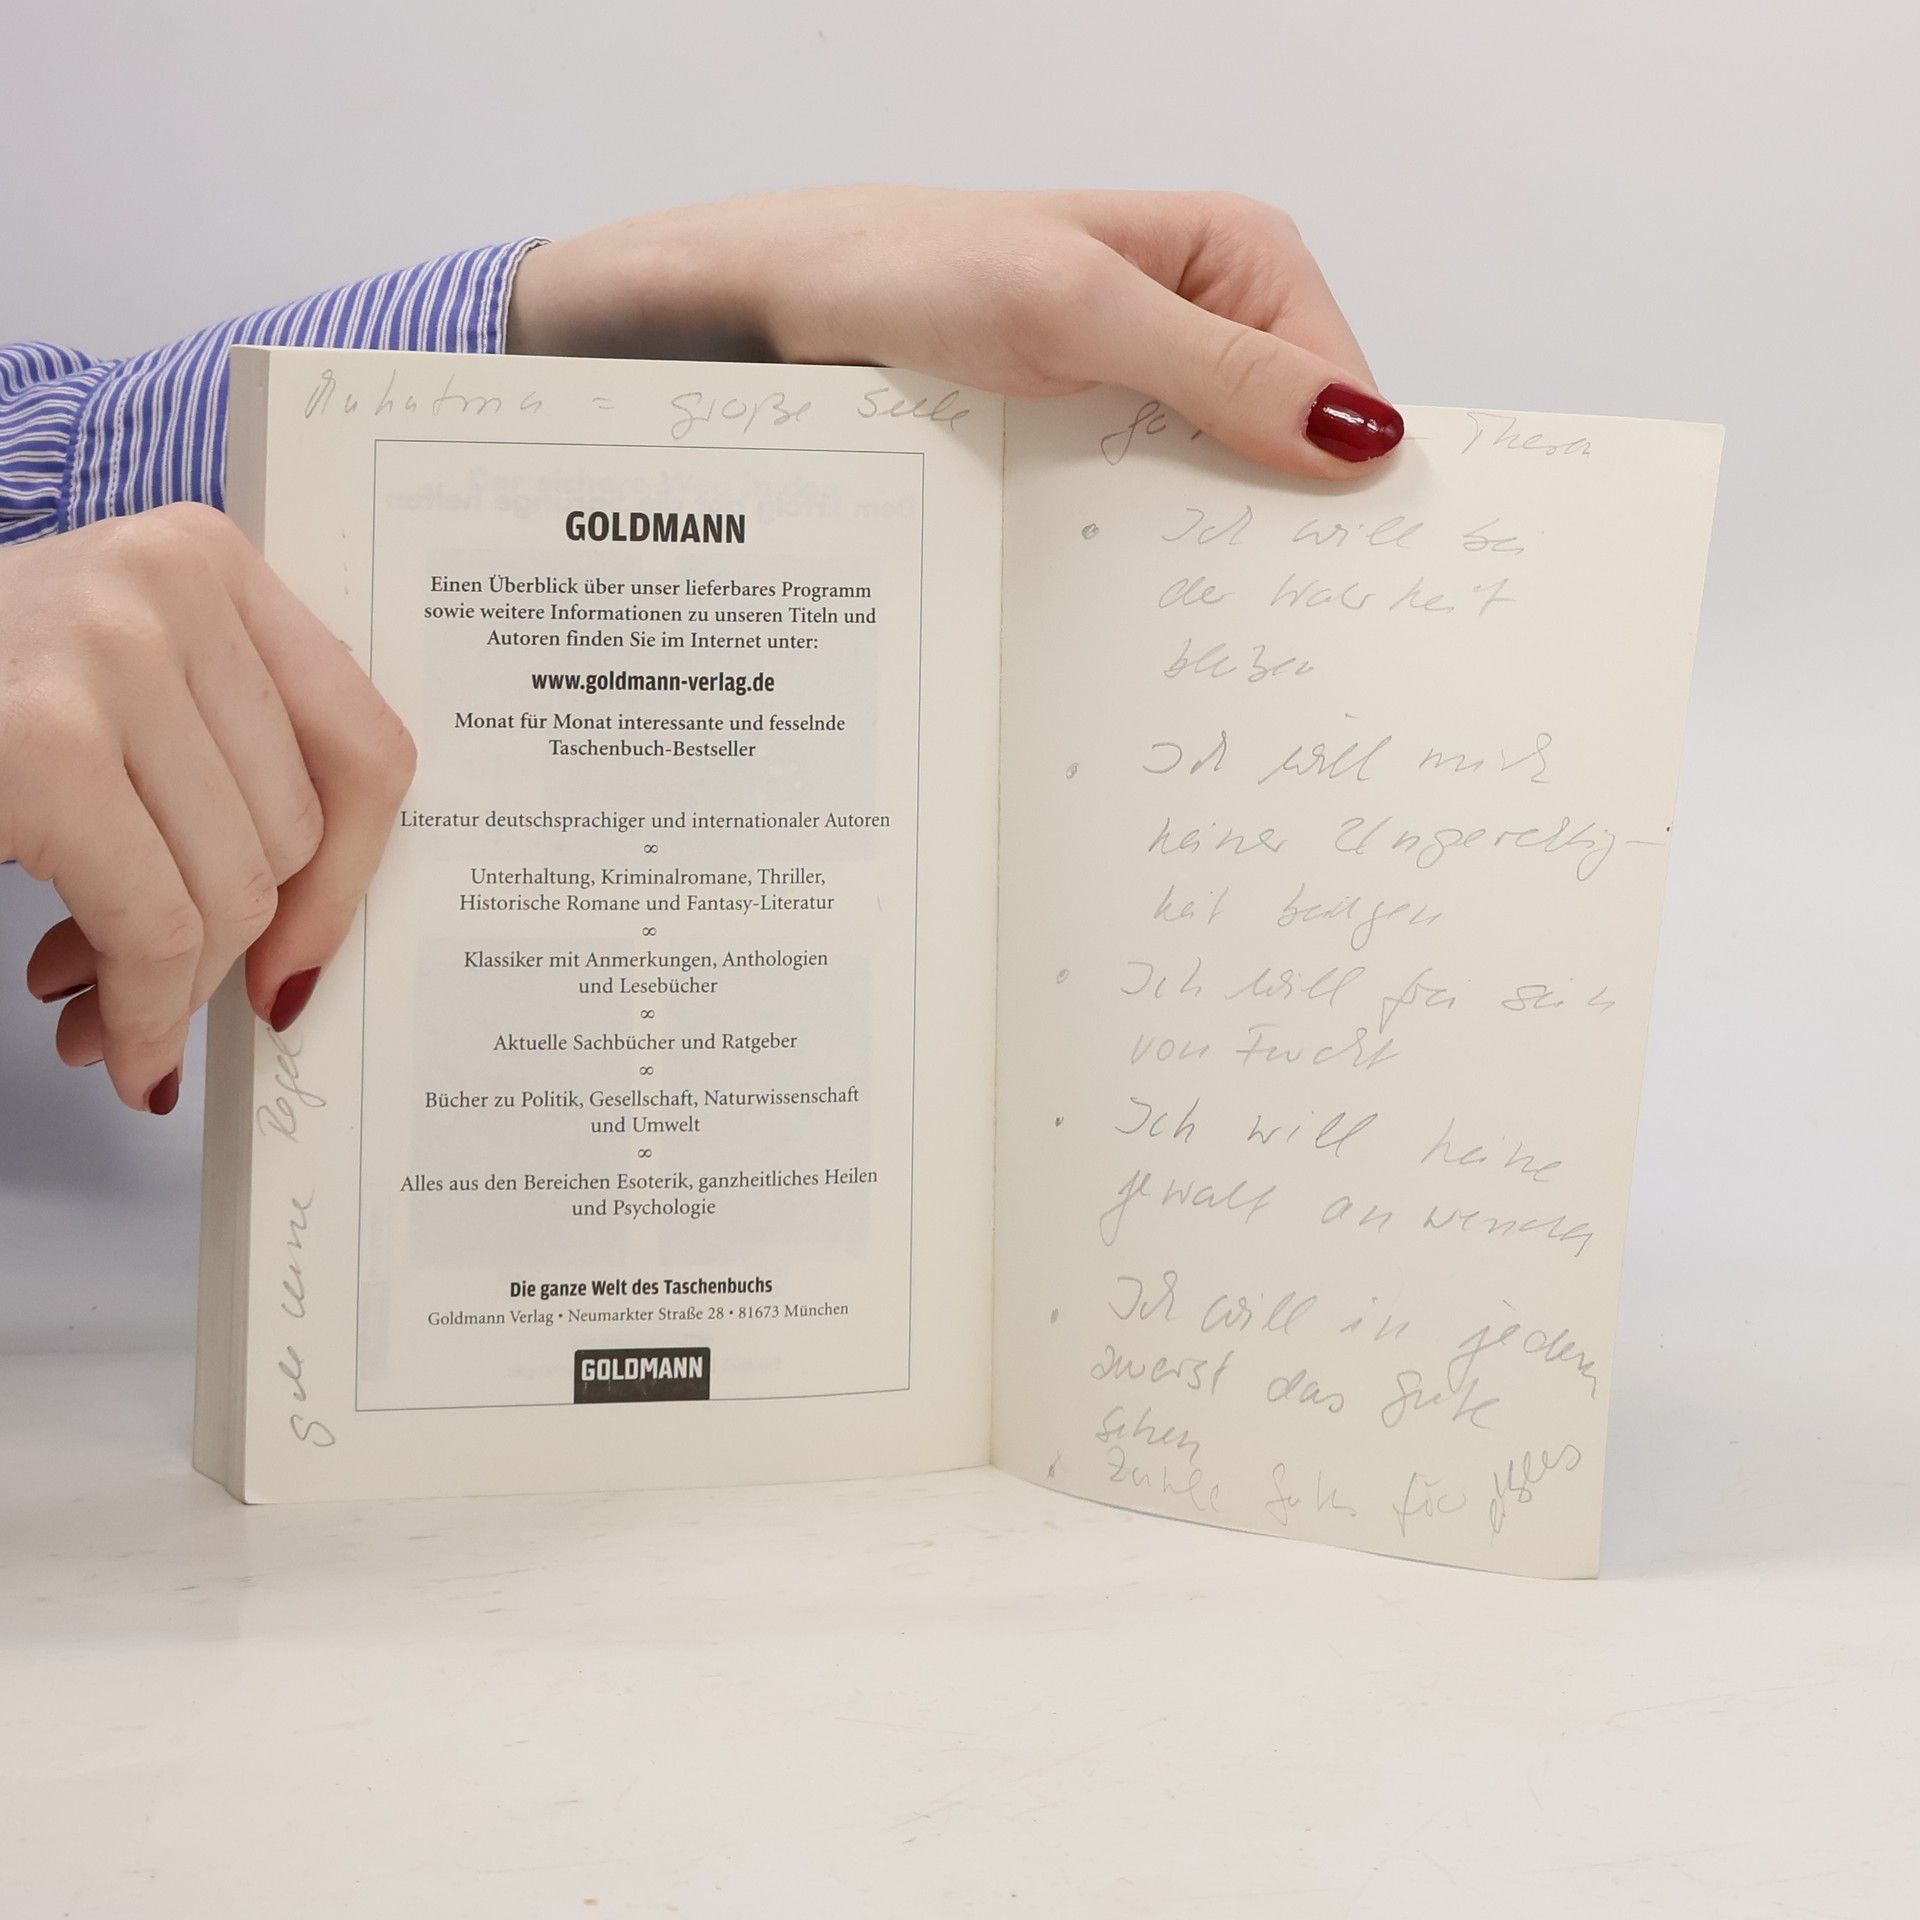 Mahatma = große Seele
GOLDMANN
Einen Überblick über unser lieferbares Programm
sowie weitere Informationen zu unseren Titeln und
Autoren finden Sie im Internet unter:
www.goldmann-verlag.de
Monat für Monat interessante und fesselnde
Taschenbuch-Bestseller
Literatur deutschsprachiger und internationaler Autoren
∞
Unterhaltung, Kriminalromane, Thriller,
Historische Romane und Fantasy-Literatur
∞
Klassiker mit Anmerkungen, Anthologien
und Lesebücher
∞
Aktuelle Sachbücher und Ratgeber
∞
Bücher zu Politik, Gesellschaft, Naturwissenschaft
und Umwelt
∞
Alles aus den Bereichen Esoterik, ganzheitliches Heilen
und Psychologie
Die ganze Welt des Taschenbuchs
Goldmann Verlag • Neumarkter Straße 28 • 81673 München
GOLDMANN
Regel
• Ich will bei
der Wahrheit
bleiben
• Ich will mich
keiner Ungerechtig-
keit beugen
• Ich will frei sein
von Furcht
• Ich will keine
gewalt anwenden
• Ich will in jedem
zuerst das Gute
sehen
• Gutes für